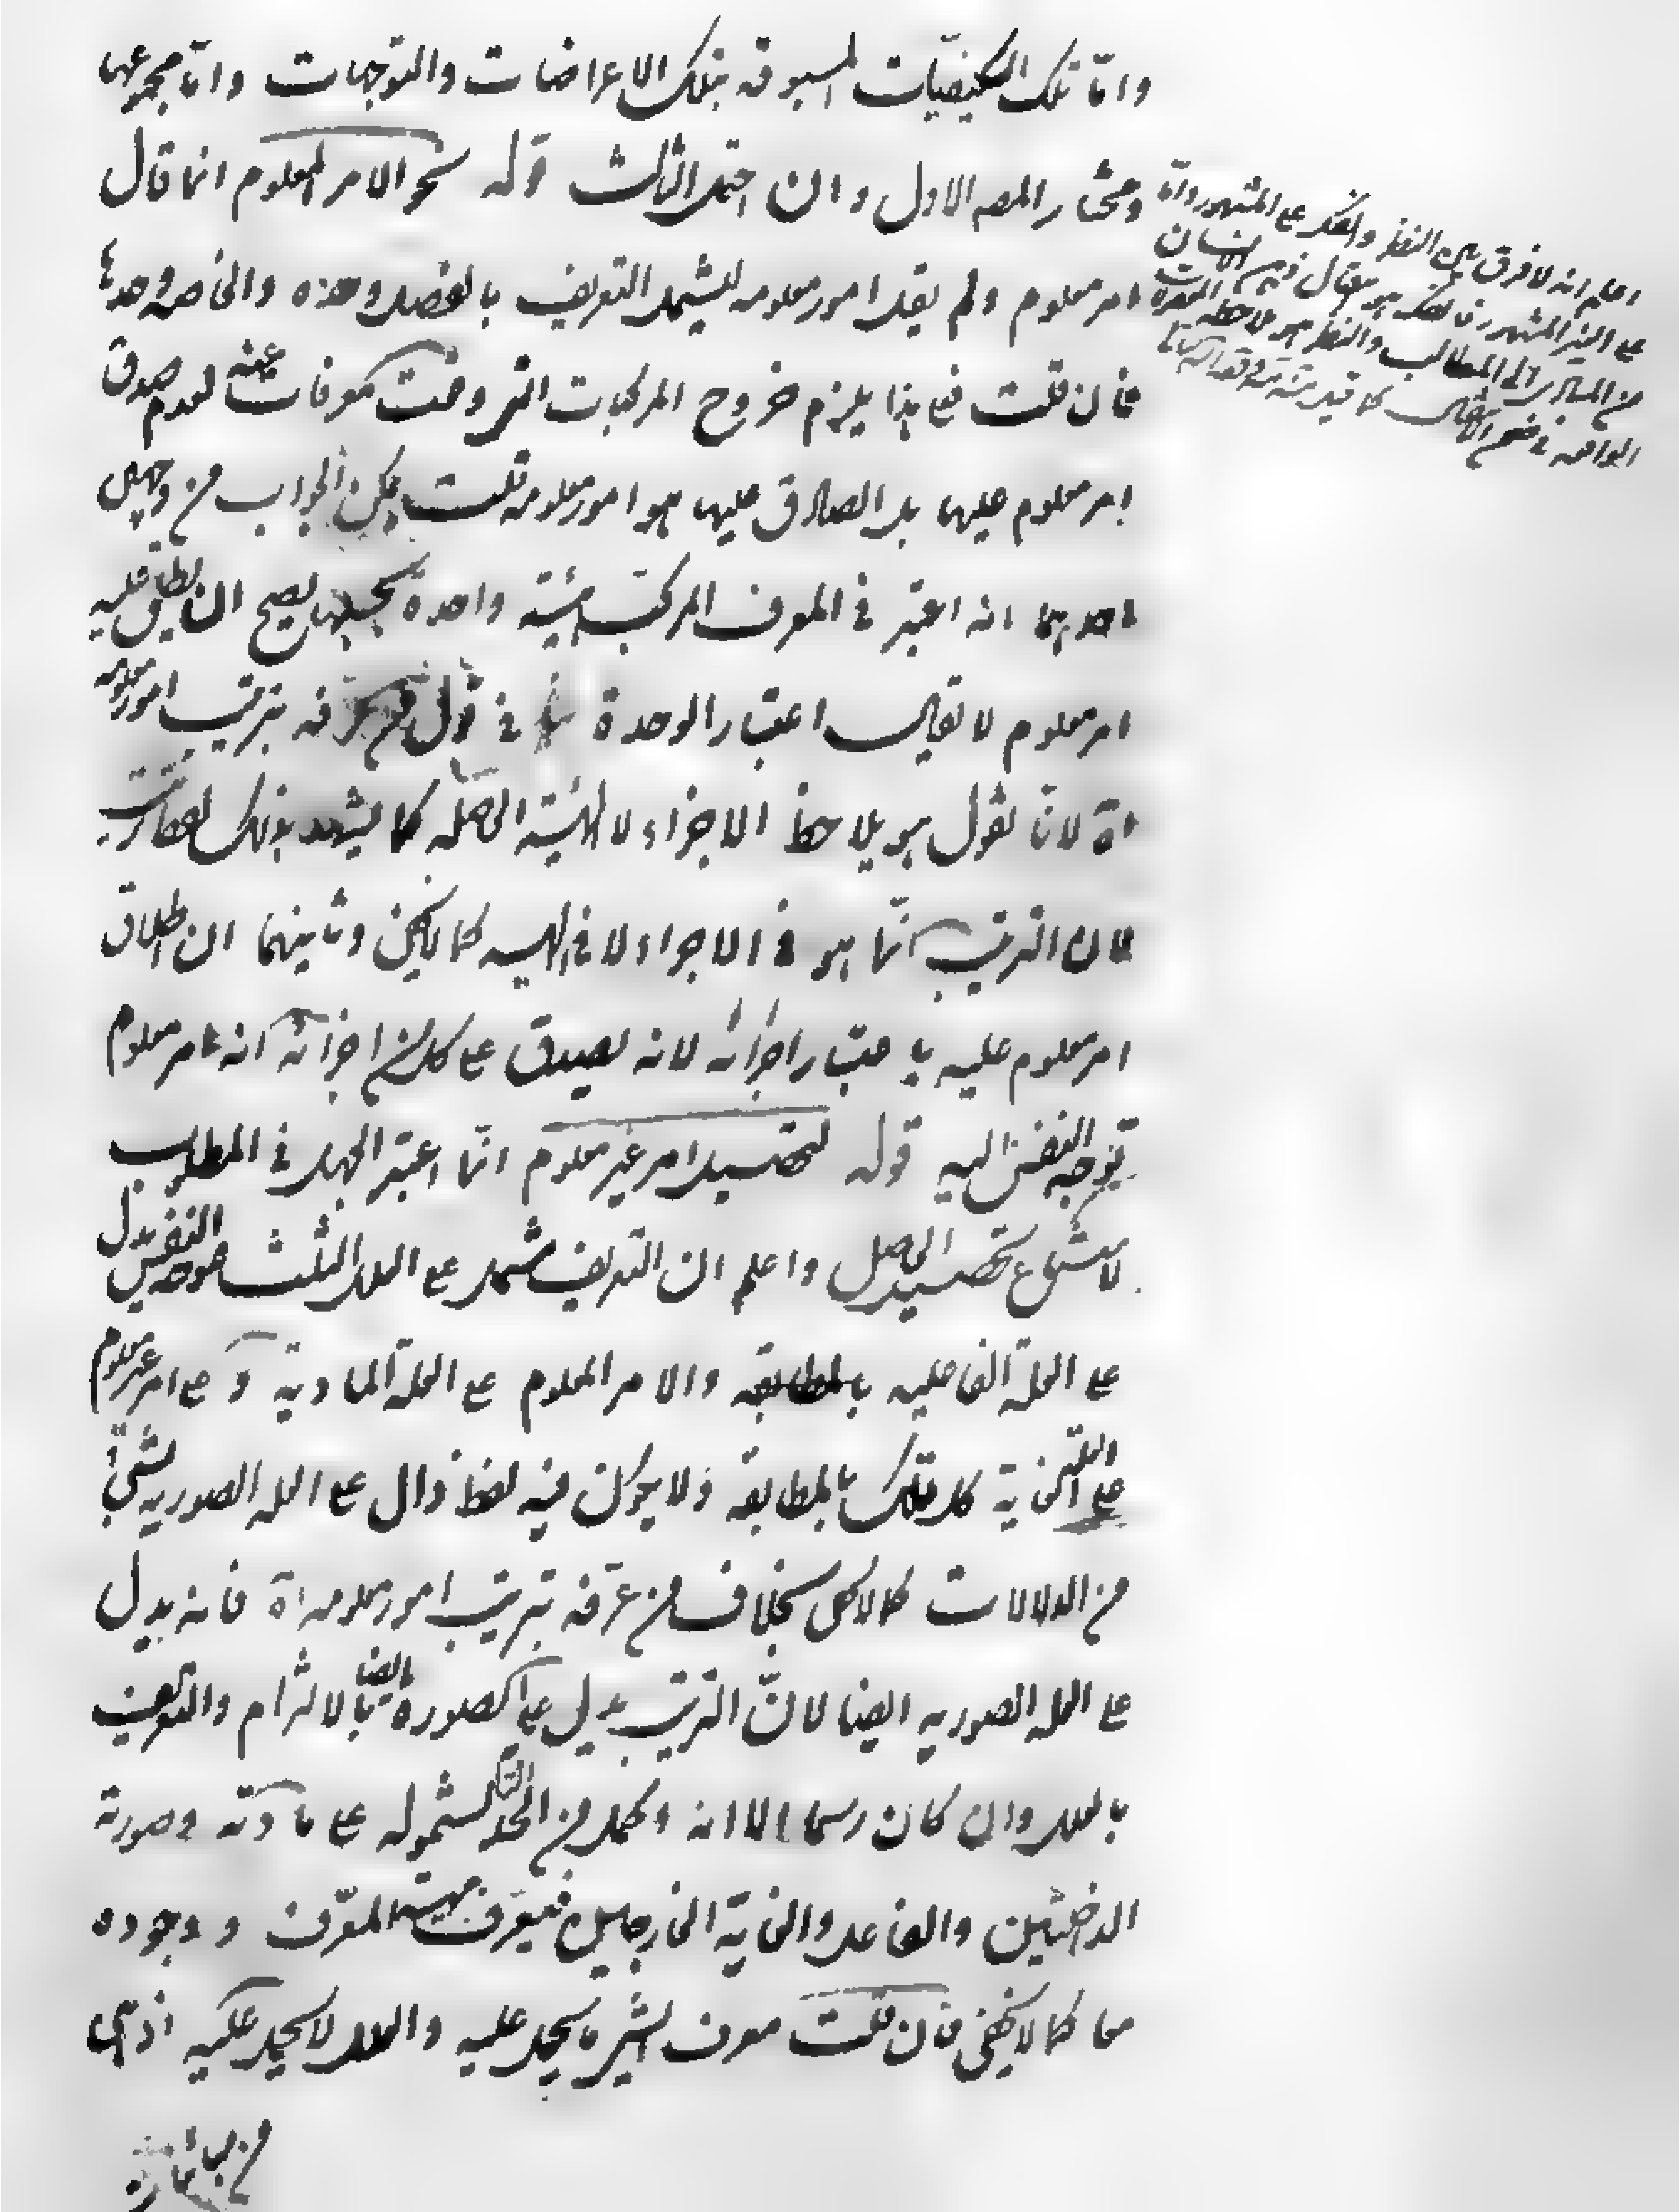 واما تلك الكيفيات المسبوقة بتلك الاعراضات والتوجهات واما مجموعها
ومختار المصـ الاول وان احتمل الثالث قوله نحو الامر المعلوم انما قال
امر معلوم ولم يقل امور معلومه ليشمل التعريف بالفصل وحده والخاصه وحدها
فان قلت فعلى هذا يلزم خروج المركبات التى وقعت معرفات عنه لعدم صدق
امر معلوم عليها بل الصادق عليها هو امور معلومه قلت يمكن الجواب من وجهين
احدهما انه اعتبر فى المعرف المركب هيئة واحدة بحسبها يصح ان يطلق عليه
امر معلوم لا يقال اعتبار الوحدة فى قول من عرفه بترتيب امور معلومه
اه لانا نقول هو يلاحظ الاجزاء لا الهيئة الحاصله كما يشهد بذلك لفظ الترتيب
فان الترتيب انما هو فى الاجزاء لا فى الهيئه كما لا يخفى وثانيهما ان اطلاق
امر معلوم عليه باعتبار اجزائه لانه يصدق على كل من اجزائه انه امر معلوم
توجه النفس اليه قوله لتحصيل امر غير معلوم انما اعتبر الجهل فى المطلوب
لامتناع تحصيل الحاصل واعلم ان التعريف يشمل على العلل الثلث فتوجه النفس يدل
على العلة الفاعليه بالمطابقه والامر المعلوم على العلة المادية و على امر غير معلوم
على العلة الغائية كل تلك بالمطابقه ولا يكون فيه لفظ دال على العله الصوريه بشئ
من الدلالات كما لا يخفى بخلاف من عرفه بترتيب امور معلومه اه فانه يدل
على العله الصوريه ايضا لان الترتيب يدل على الصورة ايضا بالالتزام والتعريف
بالعلل وان كان رسما الا انه اكمل من الحد التام لشموله على مادته وصورته
الداخلتين والفاعل والغاية الخارجين فيعرف مهية المعرف ووجوده
معا كما لا يخفى فان قلت معرف الشئ ما يحمل عليه والعلل لا يحمل عليه اذ هى
اعلم انه لا فرق بين النظر والفكر على المشهور واما
على الغير المشهور فالفكر هو انتقال ذهن الانسان
من المبادى الى المطالب والنظر هو ملاحظة المعلومات
الواقعه فى ضمن الانتقال كما